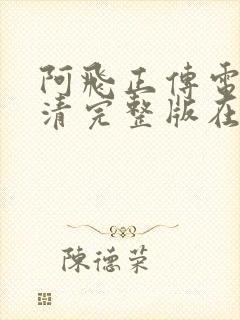 阿飛正傳電
清完整版在
陳德荣